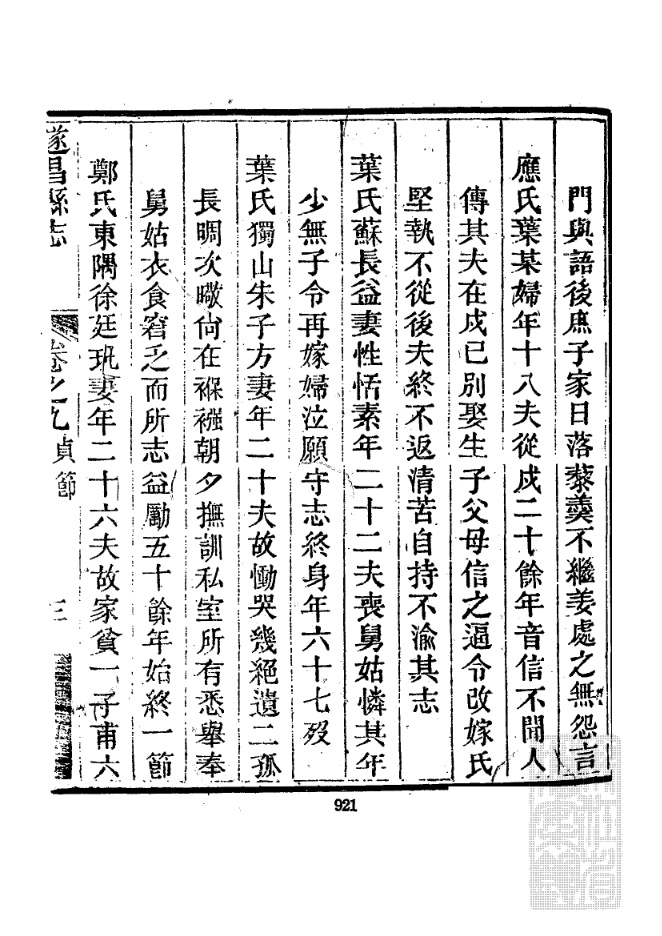 門與語後庶子家日落藜羹不繼姜處之無怨言
應氏葉某婦年十八夫從戍二十餘年音信不聞人
傳其夫在戍已別娶生子父母信之逼令改嫁氏
堅執不從後夫終不返清苦自持不渝其志
葉氏蘇長益妻性恬素年二十二夫喪舅姑憐其年
少無子令再嫁婦泣願守志終身年六十七歿
葉氏獨山朱子方妻年二十夫故慟哭幾絕遺二孤
長晭次暾尙在褓襁朝夕撫訓私室所有悉舉奉
舅姑衣食窘乏而所志益勵五十餘年始終一節
鄭氏東隅徐廷玑妻年二十六夫故家貧一子甫六
遂昌縣志
卷之九貞節
三
921